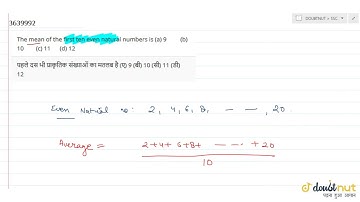 3639992
The mean of the first ten even natural numbers is (a) 9 (b)
10 (c) 11 (d) 12
पहले दस भी प्राकृतिक संख्याओं का मतलब है (ए) 9 (बी) 10 (सी) 11 (डी)
12
Even Natural no: 2, 4, 6, 8, — — , 20.
Average = 2+4+ 6+8+ — — + 20
10
doubtnut